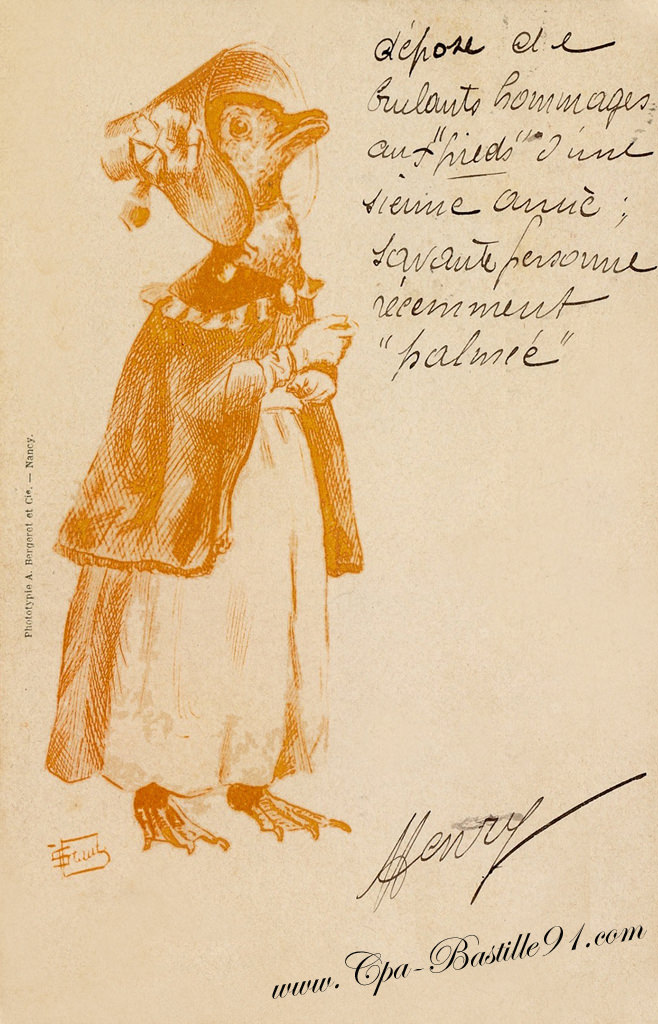 dépose de
brulants hommages
aux "pieds" d'une
sienne amie ;
savante personne
récemment
"palmée"
Phototypie A. Bergeret et Cie. — Nancy.
Henry
www.Cpa-Bastille91.com